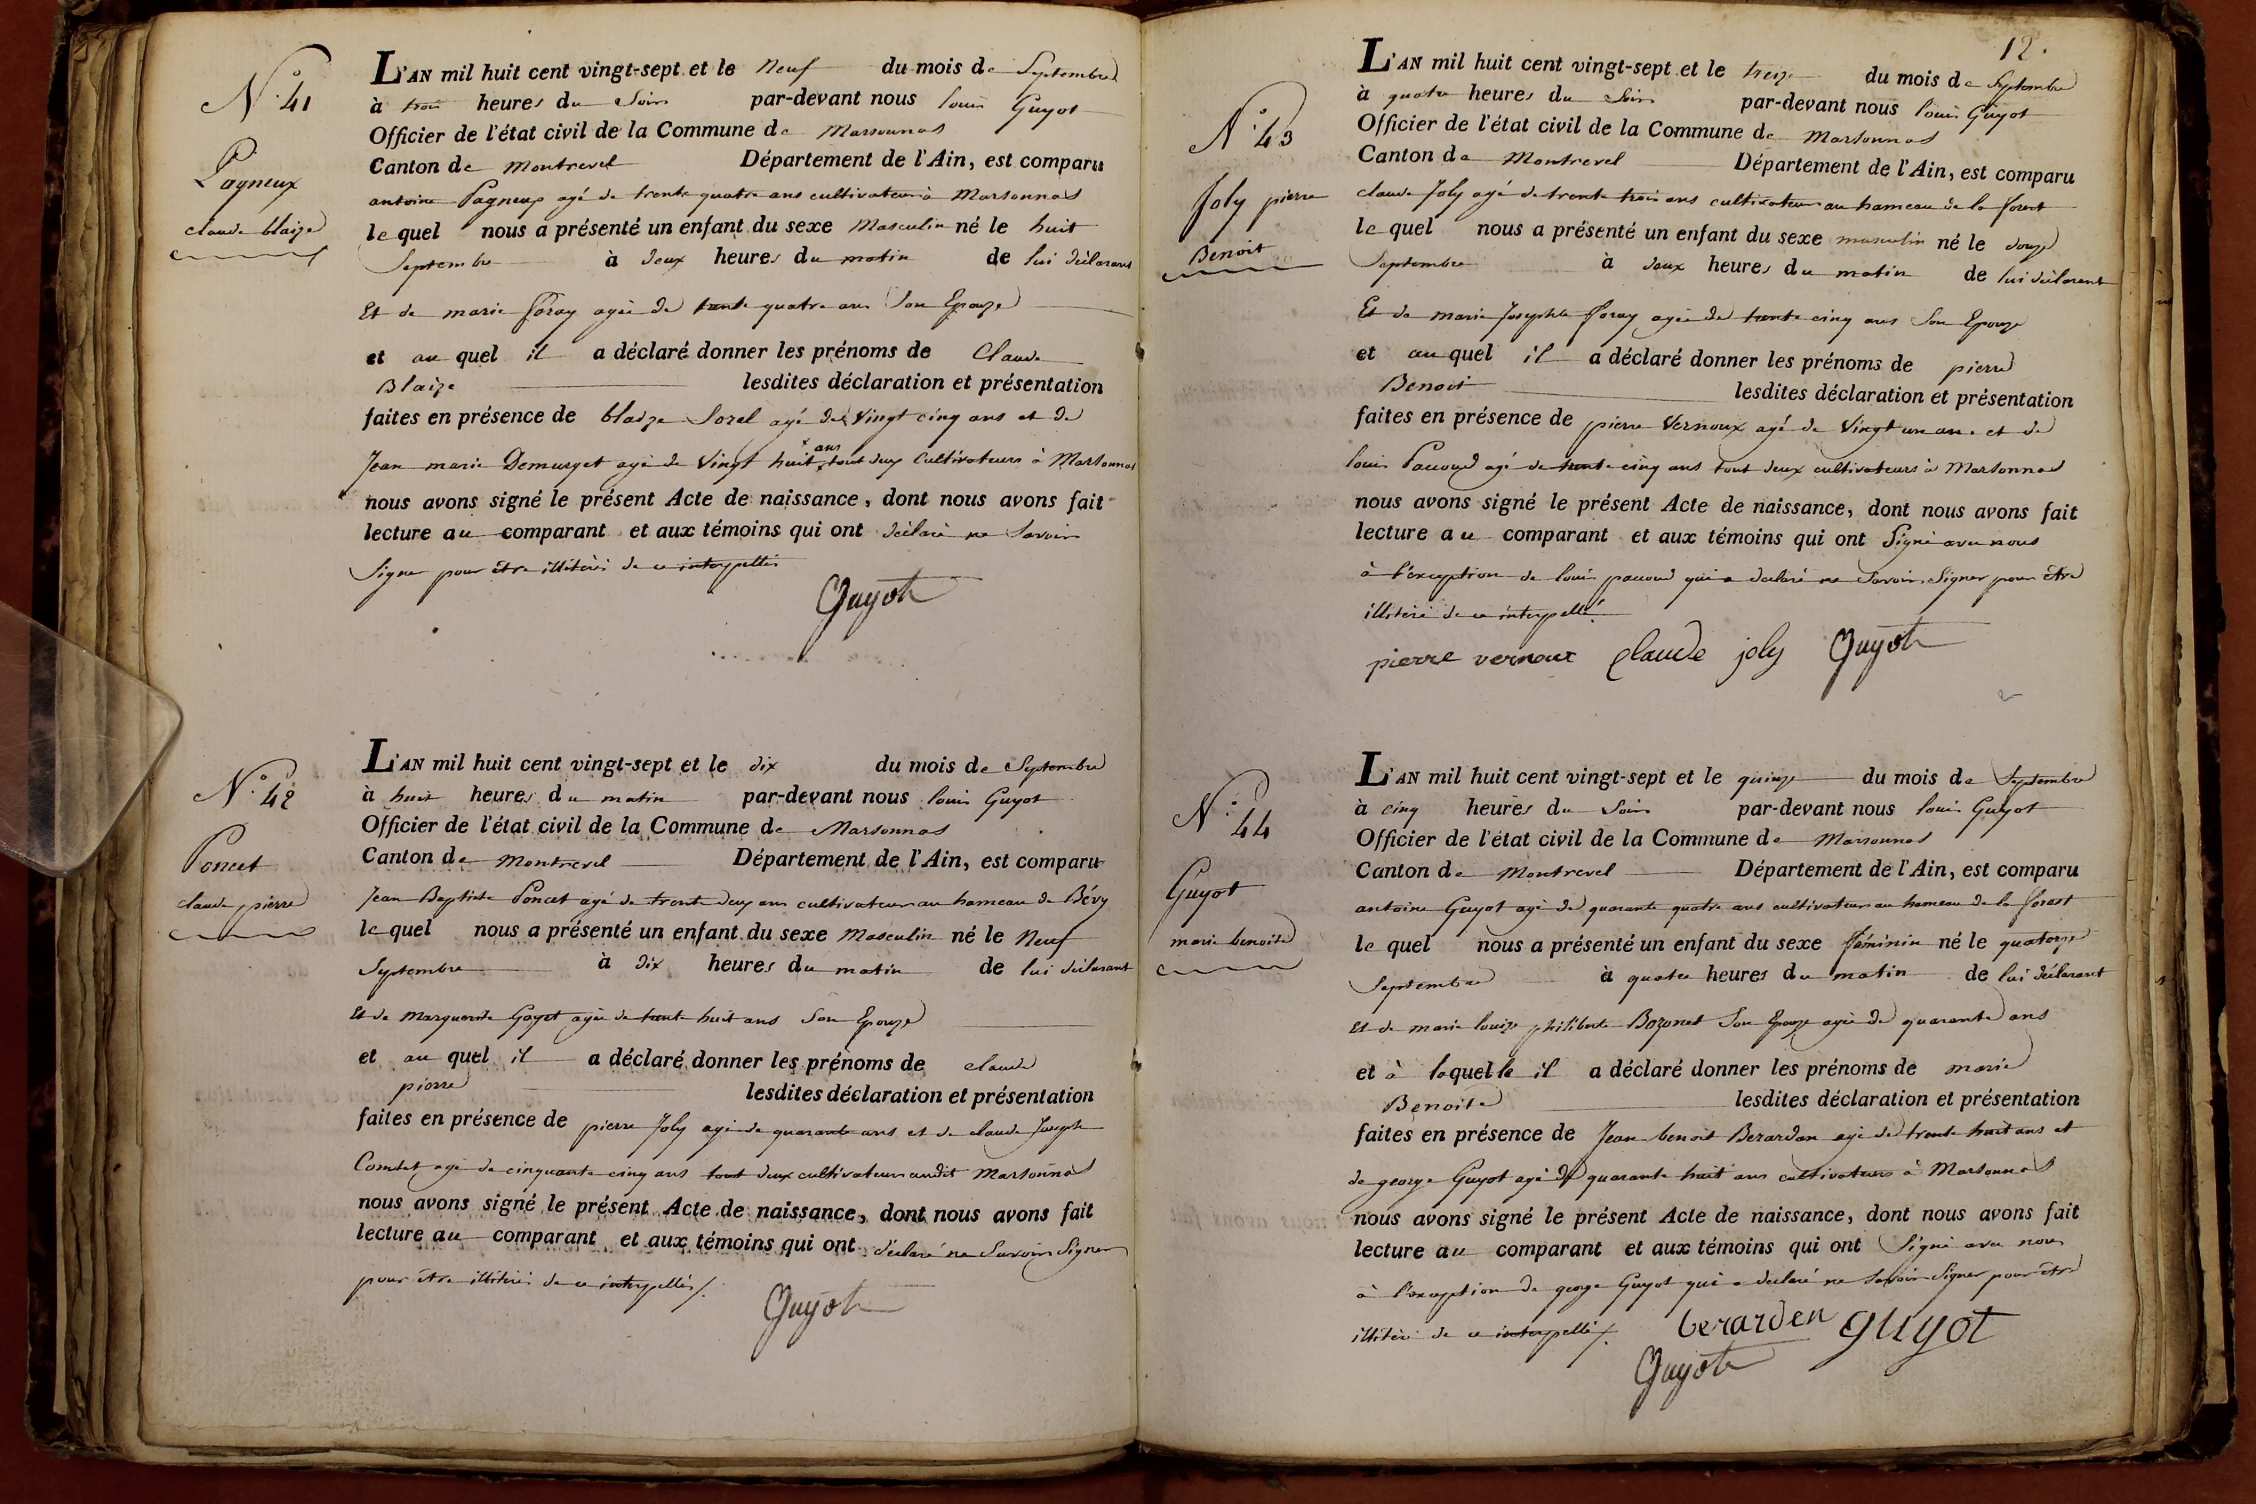 N.° 41
Pagneux
claude blaize
L'AN mil huit cent vingt-sept et le Neuf du mois de Septembre
à trois heures du Soir par-devant nous louis Guyot
Officier de l'état civil de la Commune de Marsonnas
Canton de Montrevel Département de l'Ain, est comparu
antoine Pagneux agé de trente quatre ans cultivateur à Marsonnas
lequel nous a présenté un enfant du sexe Masculin né le huit
Septembre à deux heures du matin de lui déclarant
Et de marie foray agée de trente quatre ans Son Epouze
et au quel il a déclaré donner les prénoms de Claude
Blaize lesdites déclaration et présentation
faites en présence de blaize Sorel agé de Vingt cinq ans et de
Jean marie Demurget agé de Vingt huit ans tout deux Cultivateurs à Marsonnas
nous avons signé le présent Acte de naissance, dont nous avons fait
lecture au comparant et aux témoins qui ont déclaré ne Savoir
Signer pour être illitéré de ce interpellés
Guyot
N.° 42
Poncet
claude pierre
L'AN mil huit cent vingt-sept et le dix du mois de Septembre
à huit heures du matin par-devant nous louis Guyot
Officier de l'état civil de la Commune de Marsonnas
Canton de Montrevel Département de l'Ain, est comparu
Jean Baptiste Poncet agé de trente deux ans cultivateur au hameau de Bévy
lequel nous a présenté un enfant du sexe Masculin né le Neuf
Septembre à dix heures du matin de lui déclarant
Et de Marguerite Goyet agée de trente huit ans Son Epouze
et au quel il a déclaré donner les prénoms de claude
pierre lesdites déclaration et présentation
faites en présence de pierre Joly agé de quarante ans et de claude Joseph
Combet agé de cinquante cinq ans tout deux cultivateurs audit Marsonnas
nous avons signé le présent Acte de naissance, dont nous avons fait
lecture au comparant et aux témoins qui ont déclaré ne Savoir Signer
pour être illitéré de ce interpellés
Guyot
12.
N.° 43
Joly pierre
Benoit
L'AN mil huit cent vingt-sept et le treize du mois de Septembre
à quatre heures du Soir par-devant nous louis Guyot
Officier de l'état civil de la Commune de Marsonnas
Canton de Montrevel Département de l'Ain, est comparu
claude Joly agé de trente trois ans cultivateur au hameau de la forest
lequel nous a présenté un enfant du sexe masculin né le douze
Septembre à deux heures du matin de lui déclarant
Et de marie Josephte foray agée de trente cinq ans Son Epouze
et au quel il a déclaré donner les prénoms de pierre
Benoit lesdites déclaration et présentation
faites en présence de pierre Vernoux agé de Vingt un ans et de
louis Pacoud agé de trente cinq ans tout deux cultivateurs à Marsonnas
nous avons signé le présent Acte de naissance, dont nous avons fait
lecture au comparant et aux témoins qui ont Signé avec nous
à l'exception de louis pacoud qui a déclaré ne Savoir Signer pour être
illitéré de ce interpellé
pierre vernoux claude joly Guyot
N.° 44
Guyot
marie benoite
L'AN mil huit cent vingt-sept et le quinze du mois de Septembre
à cinq heures du Soir par-devant nous louis Guyot
Officier de l'état civil de la Commune de Marsonnas
Canton de Montrevel Département de l'Ain, est comparu
antoine Guyot agé de quarante quatre ans cultivateur au hameau de la forest
lequel nous a présenté un enfant du sexe féminin né le quatorze
Septembre à quatre heures du matin de lui déclarant
Et de marie louize philiberte Bozonet Son Epouze agée de quarante ans
et à laquelle il a déclaré donner les prénoms de marie
Benoite lesdites déclaration et présentation
faites en présence de Jean benoit Berardan agé de trente huit ans et
de george Guyot agé de quarante huit ans cultivateurs à Marsonnas
nous avons signé le présent Acte de naissance, dont nous avons fait
lecture au comparant et aux témoins qui ont Signé avec nous
à l'exception de george Guyot qui a déclaré ne Savoir Signer pour être
illitéré de ce interpellé
berarden guyot
Guyot